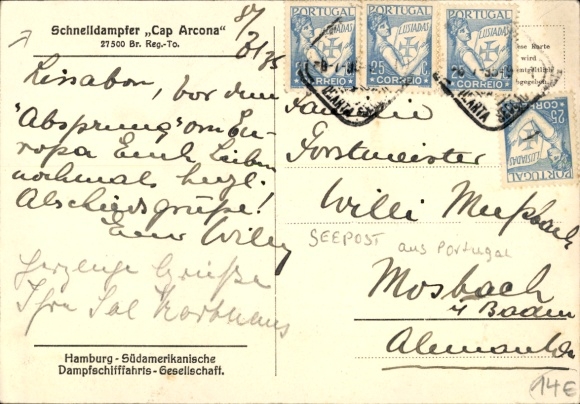 Schnelldampfer „Cap Arcona"
27500 Br. Reg.-To.
Lissabon, vor dem
"Absprung" von Eu-
ropa Euch Lieben
nochmals herzl.
Abschiedsgrüße!
Euer Willy
Herzliche Grüße
Ihre
Hamburg - Südamerikanische
Dampfschifffahrts - Gesellschaft.
PORTUGAL
LUSIADAS
25 C.
CORREIO
PORTUGAL
LUSIADAS
25 C.
CORREIO
PORTUGAL
LUSIADAS
CORREIO
PORTUGAL
LUSIADAS
25 C.
CORREIO
ese Karte
wird
entgeltlich
bgegeben
Familie
Forstmeister
Willi Meßbach
SEEPOST aus Portugal
Mosbach
i/ Baden
Alemanha
14€